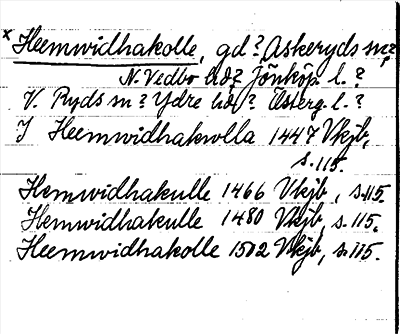 × Heemwidhakolle, gd? Askeryds sn?,
N. Vedbo hd? Jönköp. l. ?
V. Ryds sn? Ydre hd? Österg. l. ?
J Heemwidhakwlla 1447 Vkjb,
s. 115.
Hemwidhakulle 1466 Vkjb, s. 115.
Hemwidhakulle 1480 Vkjb, s. 115.
Heemwidhakolle 1502 Vkjb, s. 115.